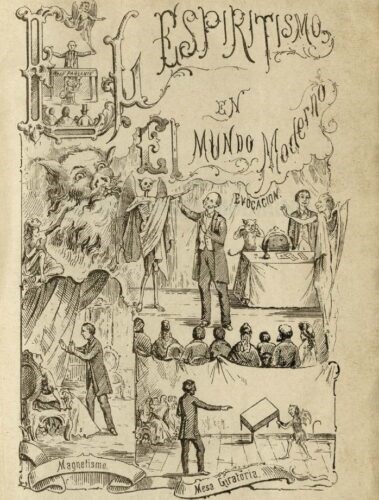 EL ESPIRITISMO
EN
El MUNDO Moderno
MESA PARLANTE
EVOCACION.
Magnetismo.
Mesa Giratoria.